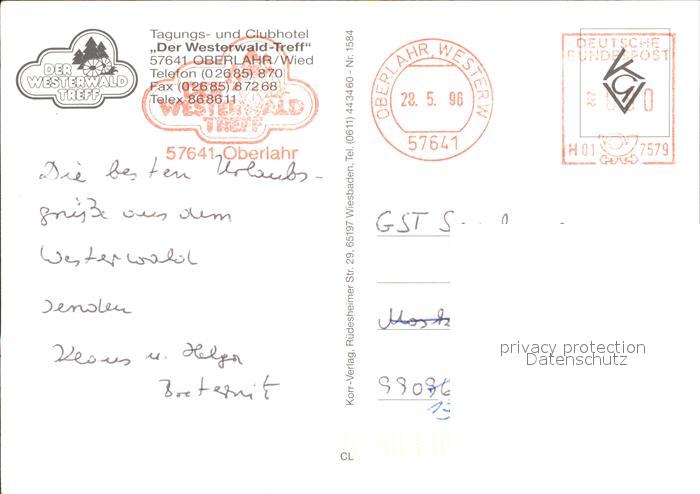 Tagungs- und Clubhotel
„Der Westerwald-Treff"
57641 OBERLAHR/Wied
Telefon (0 26 85) 8 70
Fax (0 26 85) 8 72 68
Telex 868611
DER
WESTERWALD
TREFF
WESTERWALD
TREFF
57641 Oberlahr
OBERLAHR, WESTERW
28. 5. 96
57641
DEUTSCHE
BUNDESPOST
H 01 7579
Die besten Urlaubs-
grüße aus dem
Westerwald
senden
Klaus u. Helga
Korr-Verlag, Rüdesheimer Str. 29, 65197 Wiesbaden, Tel. (0611) 443460 - Nr. 1584
GST
99096
13
privacy protection
Datenschutz
CL